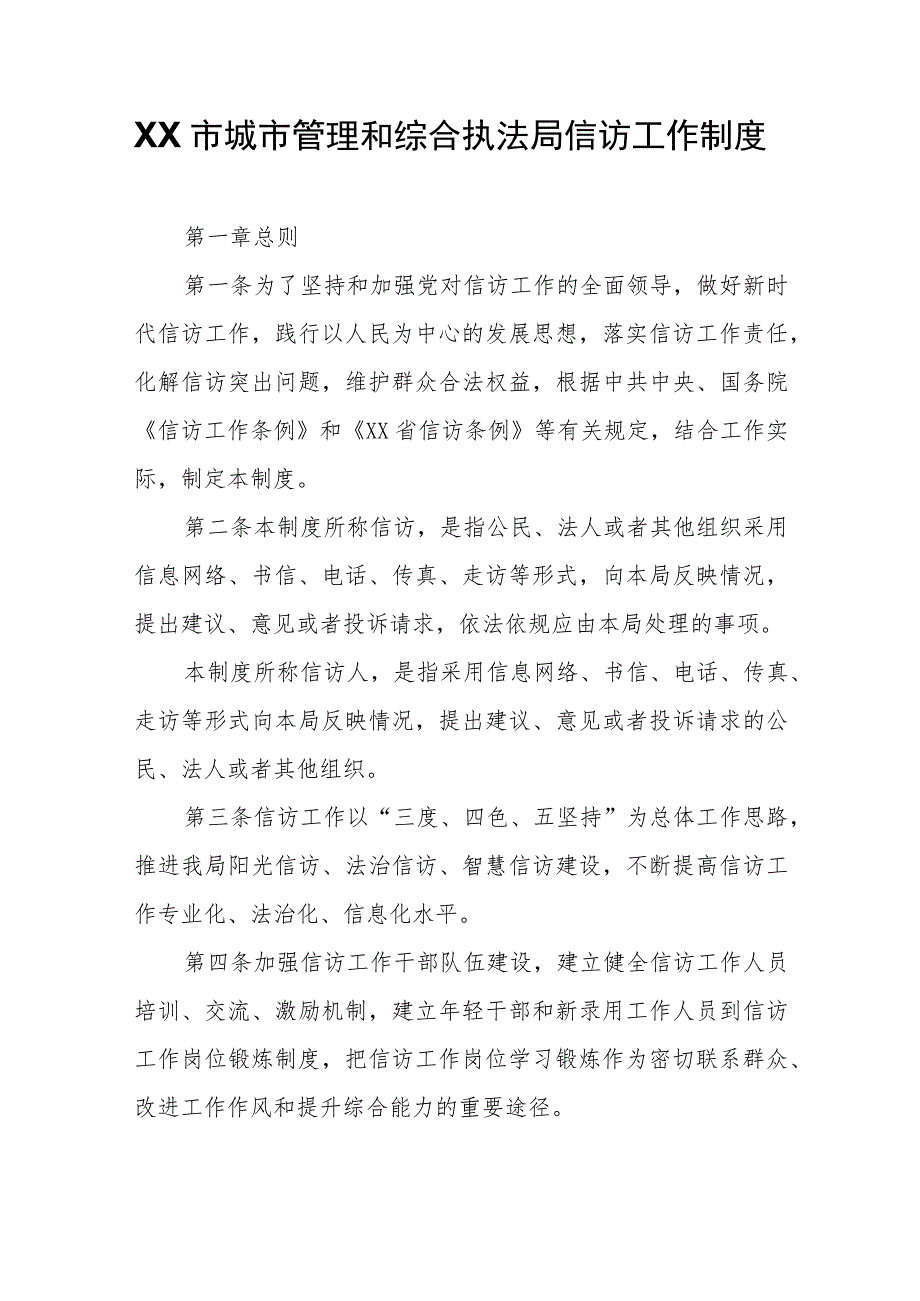 XX市城市管理和综合执法局信访工作制度
第一章总则
第一条为了坚持和加强党对信访工作的全面领导，做好新时
代信访工作，践行以人民为中心的发展思想，落实信访工作责任，
化解信访突出问题，维护群众合法权益，根据中共中央、国务院
《信访工作条例》和《XX省信访条例》等有关规定，结合工作实
际，制定本制度。
第二条本制度所称信访，是指公民、法人或者其他组织采用
信息网络、书信、电话、传真、走访等形式，向本局反映情况，
提出建议、意见或者投诉请求，依法依规应由本局处理的事项。
本制度所称信访人，是指采用信息网络、书信、电话、传真、
走访等形式向本局反映情况，提出建议、意见或者投诉请求的公
民、法人或者其他组织。
第三条信访工作以“三度、四色、五坚持”为总体工作思路，
推进我局阳光信访、法治信访、智慧信访建设，不断提高信访工
作专业化、法治化、信息化水平。
第四条加强信访工作干部队伍建设，建立健全信访工作人员
培训、交流、激励机制，建立年轻干部和新录用工作人员到信访
工作岗位锻炼制度，把信访工作岗位学习锻炼作为密切联系群众、
改进工作作风和提升综合能力的重要途径。